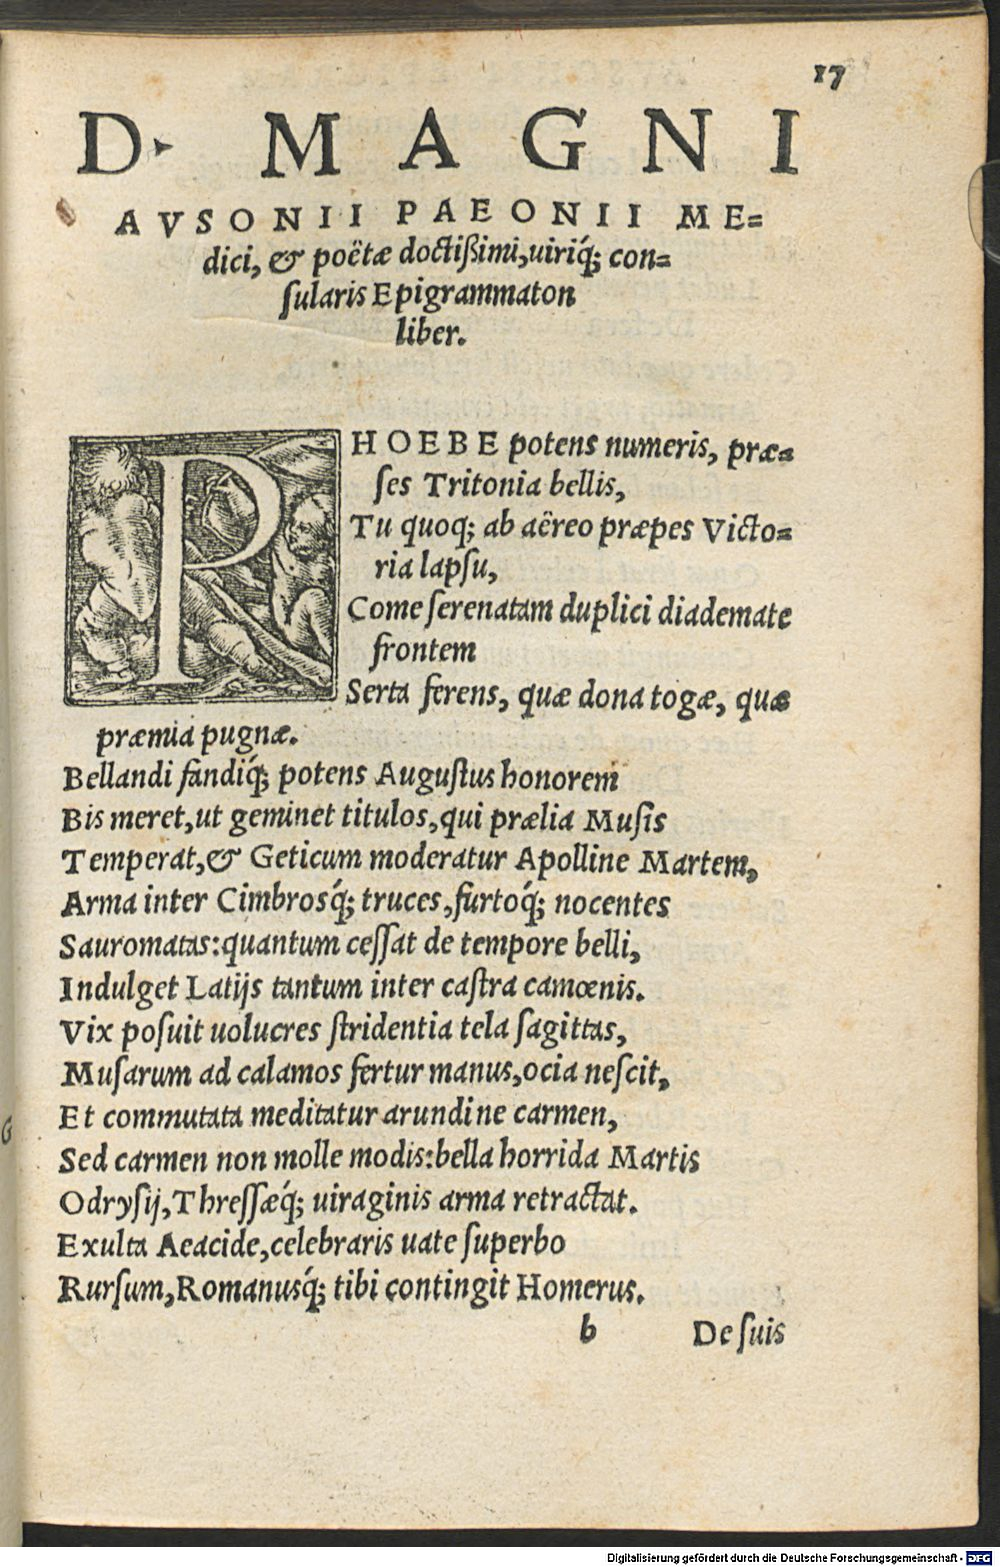 17
D. MAGNI
AVSONII PAEONII ME=
dici, & poëtæ doctißimi, uiriq́; con=
ſularis Epigrammaton
liber.
PHOEBE potens numeris, præ=
ſes Tritonia bellis,
Tu quoq; ab aëreo præpes Victo=
ria lapſu,
Come ſerenatam duplici diademate
frontem
Serta ferens, quæ dona togæ, quæ
præmia pugnæ.
Bellandi fandiq́; potens Auguſtus honorem
Bis meret, ut geminet titulos, qui prælia Muſis
Temperat, & Geticum moderatur Apolline Martem,
Arma inter Cimbrosq́; truces, furtoq́; nocentes
Sauromatas: quantum ceſſat de tempore belli,
Indulget Latijs tantum inter caſtra camœnis.
Vix poſuit uolucres ſtridentia tela ſagittas,
Muſarum ad calamos fertur manus, ocia neſcit,
Et commutata meditatur arundine carmen,
Sed carmen non molle modis: bella horrida Martis
Odryſij, Threſſæq́; uiraginis arma retractat.
Exulta Aeacide, celebraris uate ſuperbo
Rurſum, Romanusq́; tibi contingit Homerus.
b De ſuis
Digitalisierung gefördert durch die Deutsche Forschungsgemeinschaft - DFG